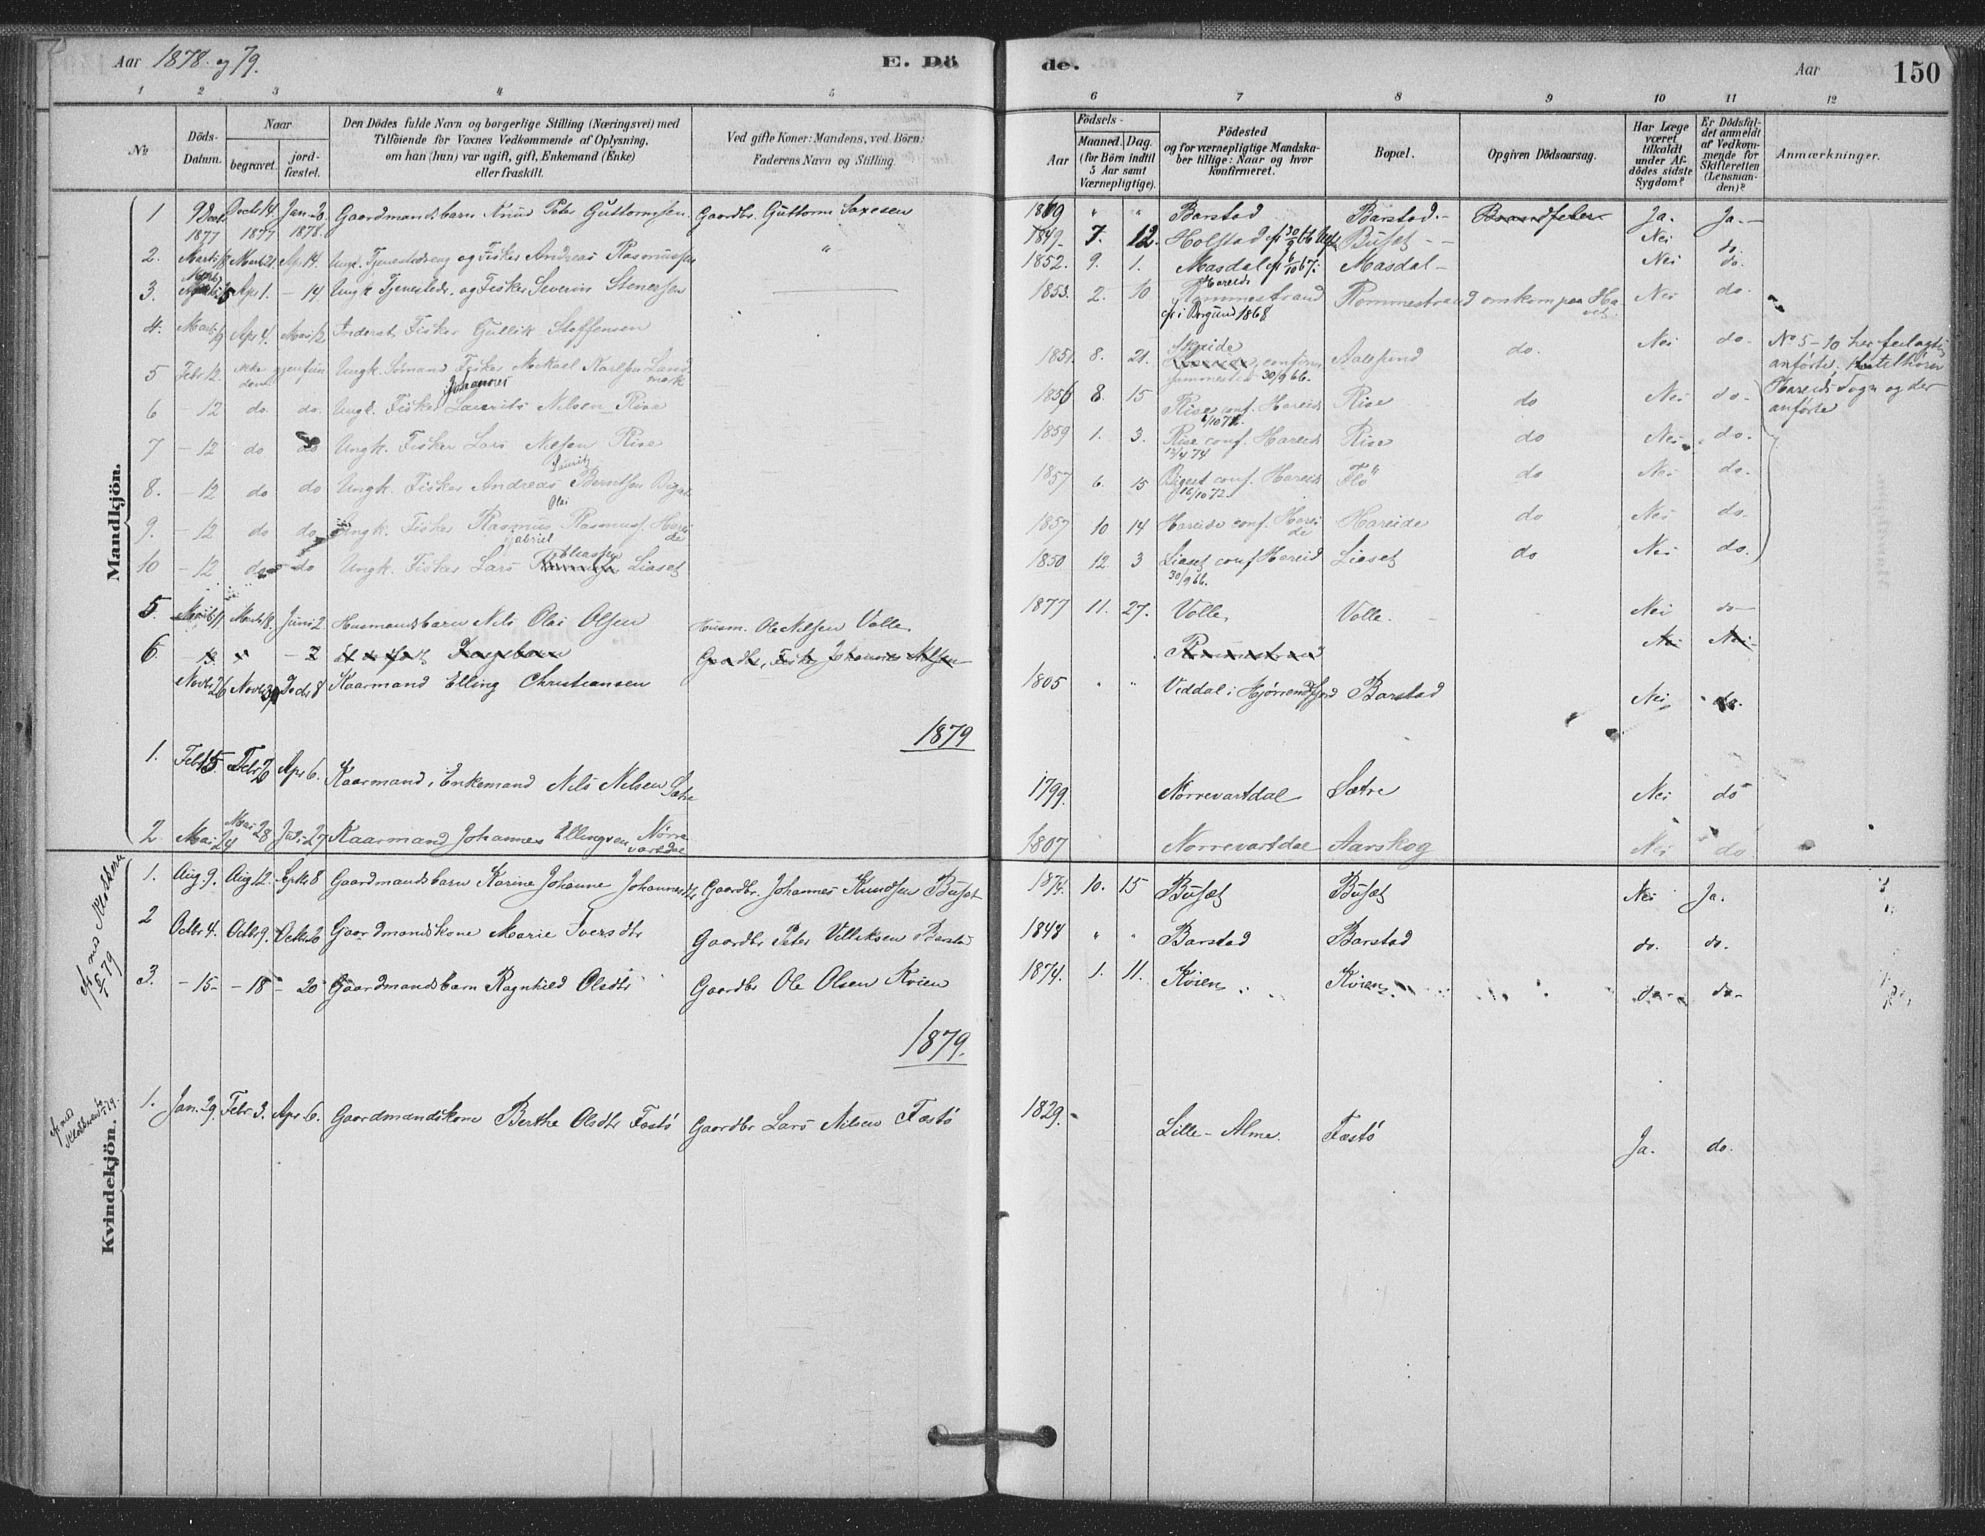 Aar 1878 og 79. E. Döde. Aar 150
1 2 3 4 5 6 7 8 9 10 11 12
No. Döds-Datum. Naar begravet. jordfæstet. Den Dödes fulde Navn og borgerlige Stilling (Næringsvei) med Tilföiende for Voxnes Vedkommende af Oplysning, om han (hun) var ugift, gift, Enkemand (Enke) eller fraskilt. Ved gifte Koner: Mandens, ved Börn: Faderens Navn og Stilling. Födsels- Aar Maaned. Dag. (for Börn indtil 5 Aar samt Værnepligtige). Födested og for værnepligtige Mandskaber tillige: Naar og hvor konfirmeret. Bopæl. Opgiven Dödsaarsag. Har Læge været tilkaldt under Afdödes sidste Sygdom? Er Dödsfaldet anmeldt af Vedkommende for Skifteretten (Lensmanden)? Anmærkninger.
Mandkjön.
1 9 Decbr. 1877 Decbr 14 1877 Jan. 20 1878. Gaardmandsbarn Knud Peter Guttormsen Gaardbr. Guttorm Saxesen 1869 " " Barstad Barstad Ja. Ja.
2. Marts 18 Marts 21 Apr 14. Ungk. Tjenestedreng og Fisker Andreas Rasmussen " 1849 7. 12. Holstad cf 30/9 66 Buset Nei do.
3. Apr 1. 14 Ungk Tjenestedr. og Fisker Severin Stenersen 1852. 9. 1. Masdal cf 6/10 67. Masdal Nei do.
4. Marts 19 Apr 4. Mai 12 Inderst Fisker Gullik Steffensen 1853. 2. 10 Hareids Rommestrand cf i Borgund 1868 Rommestrand omkom paa Havet. Nei do.
5 Febr 12. ikke gjenfundent Ungk. Sömand Fisker Mikael Karlsen Landmark 1851. 8. 21. Skeide 30/9 66. Aalesund do. Nei do. No 5-10 her feilagtig anførte,
6 - 12 do. do. Ungk. Fisker Laurits Johannes Nilsen Rise 1856 8. 15 Rise conf. Hareid 6/10 72. Rise do Nei do. Hareids Sogn og der anførte
7 - 12 do do Ungk. Fisker Lars Nilsen Rise 1859 1. 3. Rise conf. Hareid 12/4 74 Rise do Nei do.
8. - 12 do do Ungk. Fisker Andreas Lauritz Berntsen Biget 1857 6. 15 Biget conf. Hareid 16/10 72. Flö do Nei do.
9. - 12 do do Ungk. Fisker Rasmus Olai Rasmuss. Hareide 1857 10 14 Hareide conf. Hareide Hareide do Nei do.
10 - 12 do do Ungk. Fisker Lars Gabriel Eliassen Liaset 1850. 12. 3 Liaset conf Hareid 30/9 66. Liaset do Nei do.
5. Marts 11 Marts 18. Juni 2 Husmandsbarn Nils Olai Olsen Husm. Ole Nilsen Volle 1877 11. 27. Volle Volle. Nei do
6. 13 Gaardbr, Fisker Johannes Nilsen Nei Nei
Novbr 26 Novbr 30 Decbr 8 Kaarmand Elling Christiansen 1805 " " Viddal i Hjörrendfjord Barstad Nei do.
1879
1. Febr 15. Febr 26 Apr 6. Kaarmand, Enkemand Nils Nilsen Sætre 1799. Nørrevartdal Sætre Nei do
2 Mai 24 Mai 28 Juli 27 Kaarmand Johannes Ellingsen Nørrevartdal 1807 Nørrevartdal Aarskog Nei do
Kvindekjön.
1. Aug 9. Aug 12. Septbr 8 Gaardmandsbarn Karine Johanne Johannesdtr Gaardbr. Johannes Knudsen Buset 1874. 10. 15 Buset Buset Nei Ja.
2 Octbr 4. Octbr 9. Octbr 20 Gaardmandskone Marie Iversdtr Gaardbr Peter Villiksen Barstad 1848 " " Barstad Barstad do. do.
3. - 15 - - 18 - 20 Gaardmandsbarn Ragnhild Olsdtr Gaardbr Ole Olsen Kvien 1874. 1. 11. Kvien Kvien do. do.
1879.
1. Jan. 29. Febr 3. Apr 6. Gaardmandskone Berthe Olsdtr Fæstö Gaardbr Lars Nilsen Fæstö 1829. Lille-Alme. Fæstö Ja. do.